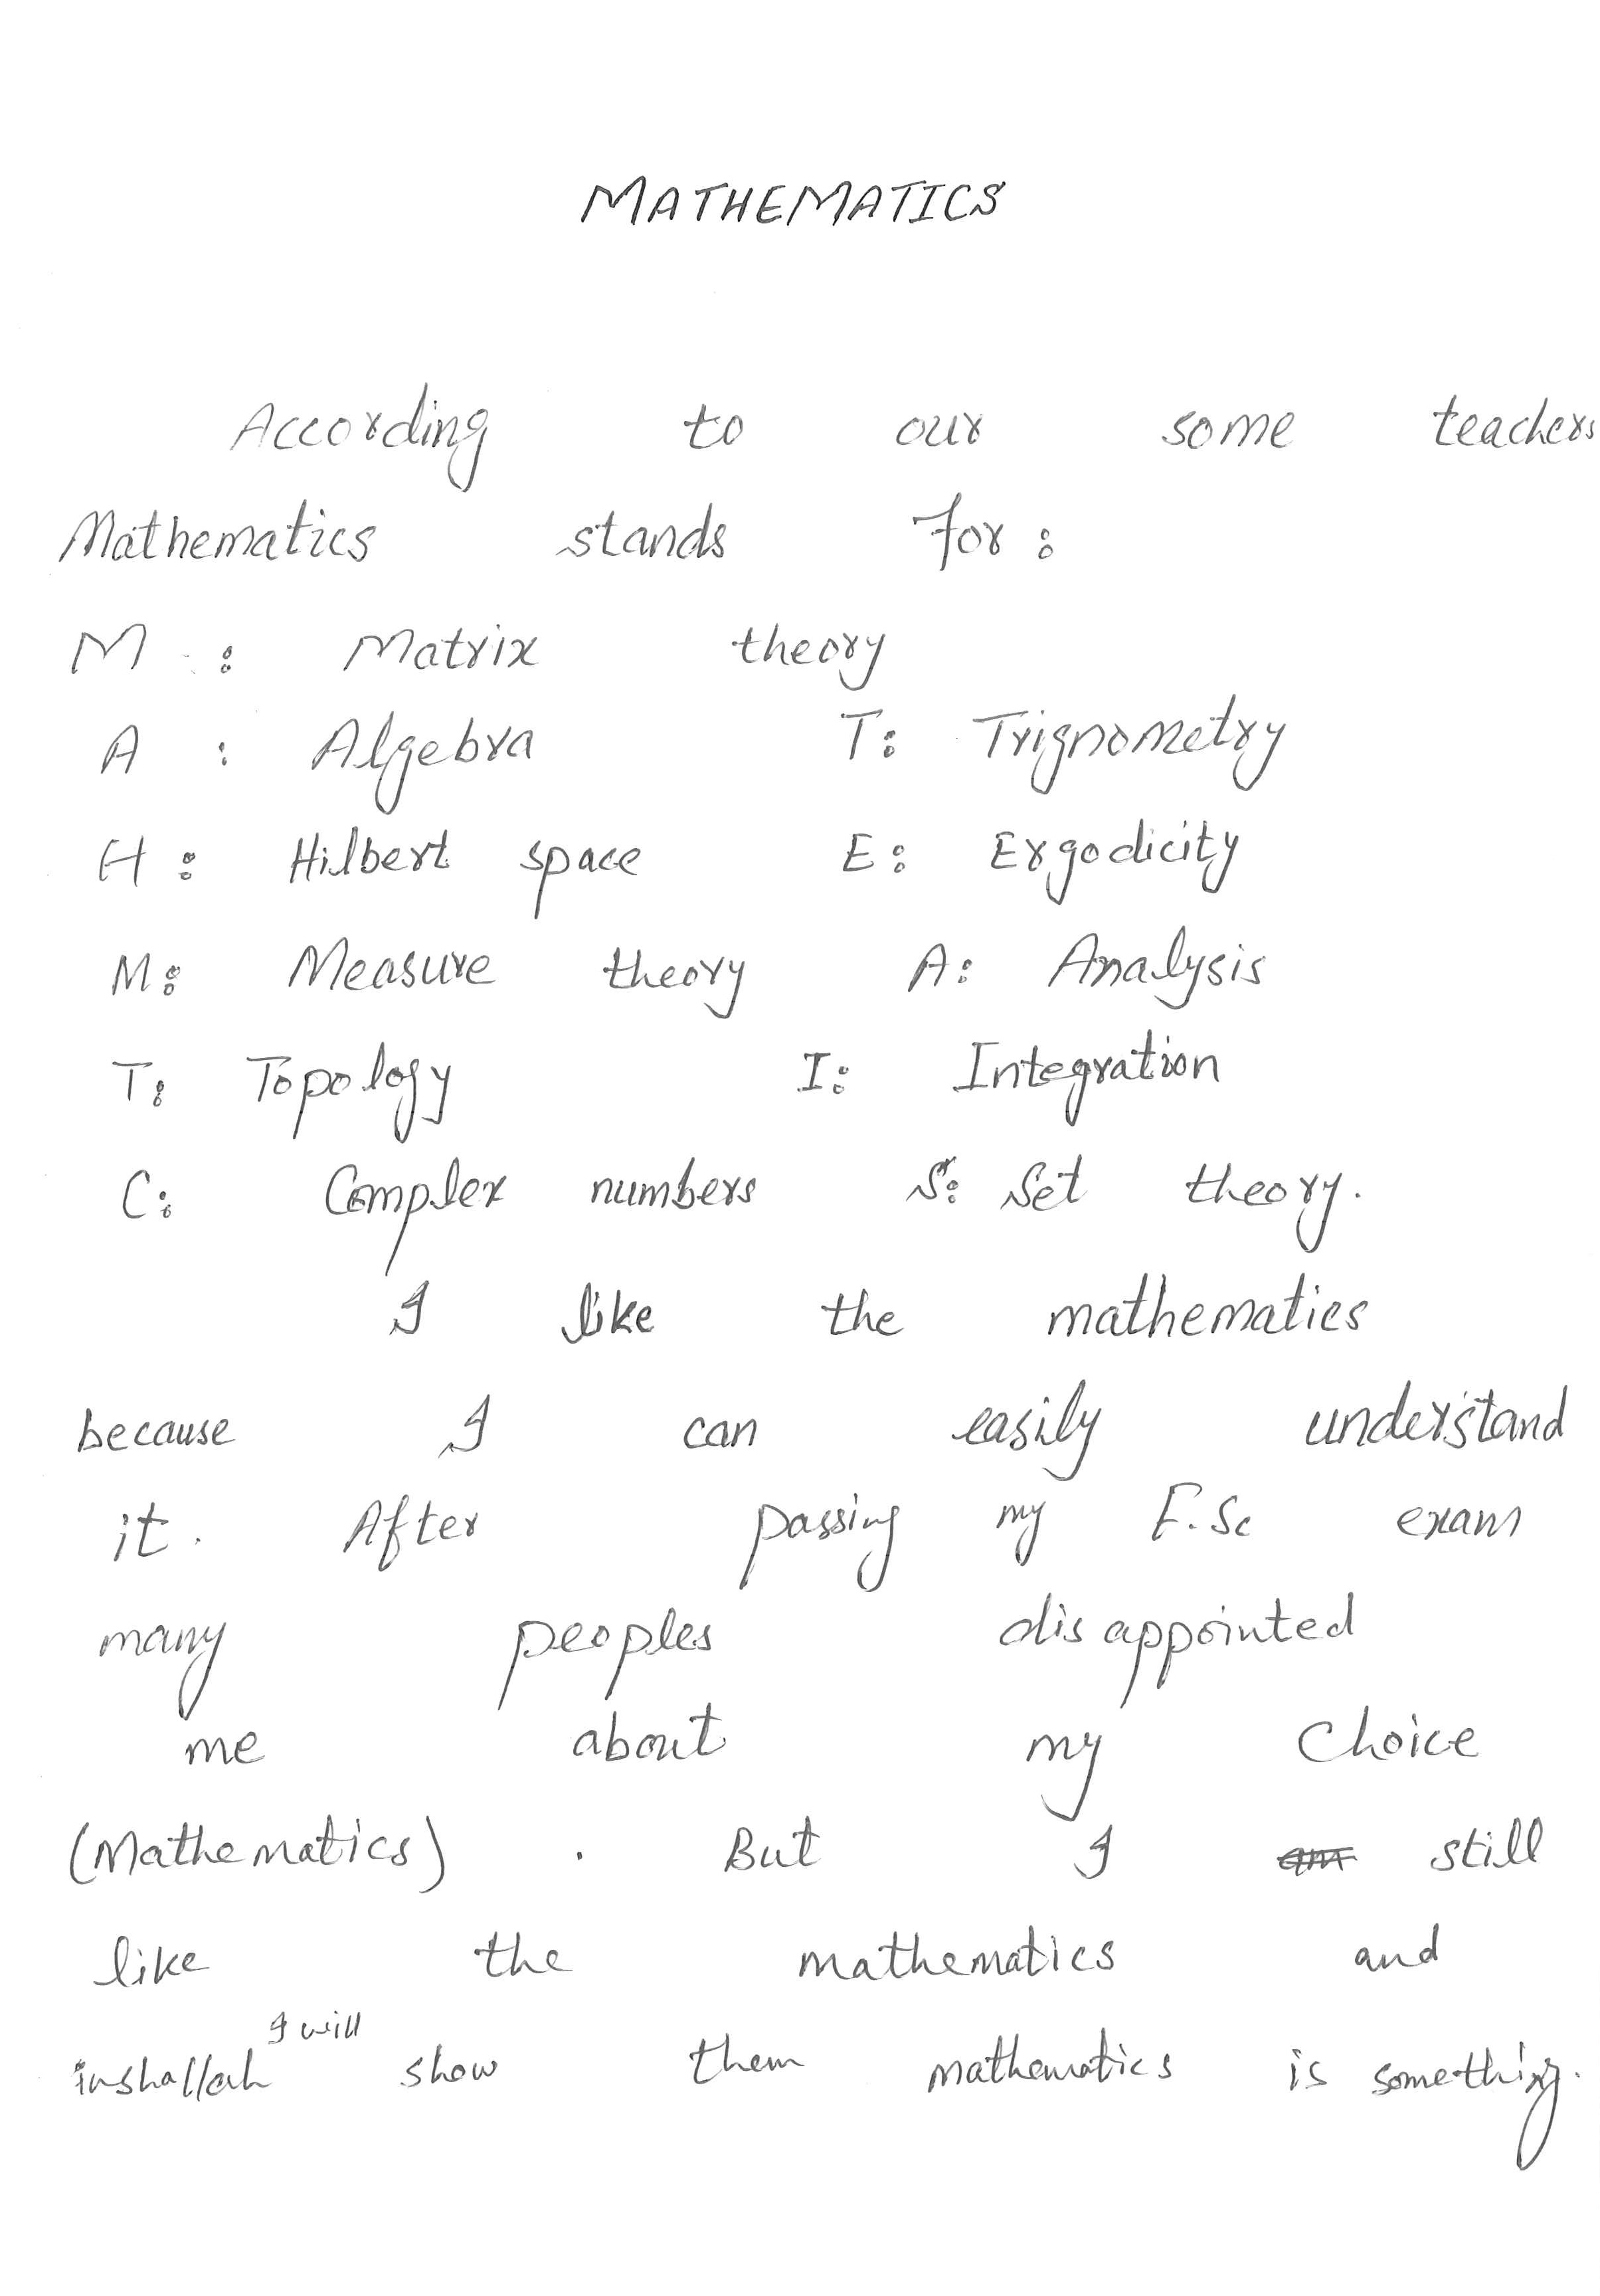 MATHEMATICS
According to our some teachers
Mathematics stands for :
M : Matrix theory
A : Algebra T: Trignometry
H : Hilbert space E: Ergodicity
M: Measure theory A: Analysis
T: Topology I: Integration
C: Complex numbers S: Set theory.
I like the mathematics
because I can easily understand
it. After passing my F.Sc exam
many peoples disappointed
me about my Choice
(Mathematics) . But I still
like the mathematics and
inshallah I will show them mathematics is something.